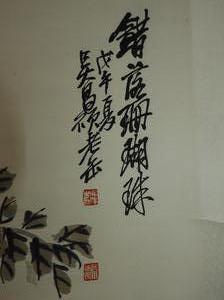 錯落珊瑚珠
戊午夏
吳昌碩老缶